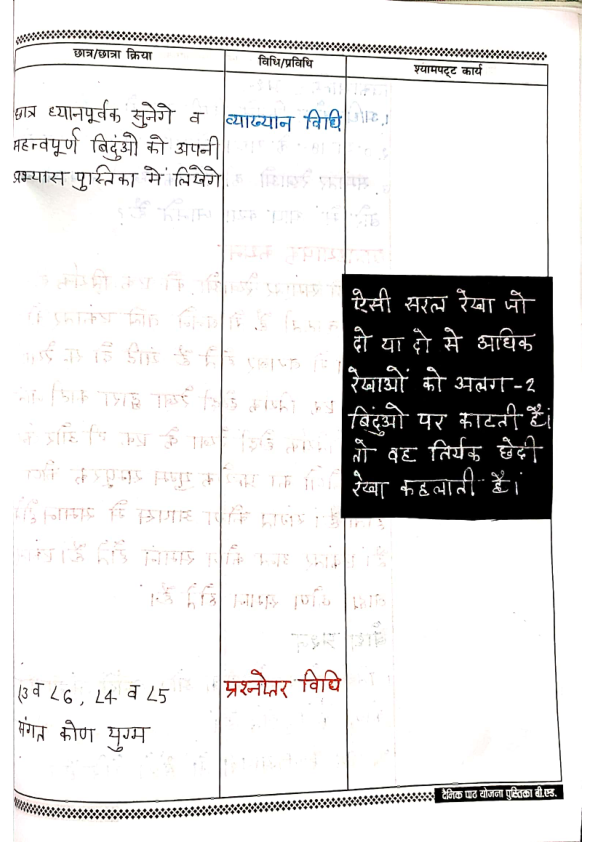 छात्र/छात्रा क्रिया
विधि/प्रविधि
श्यामपट्ट कार्य
छात्र ध्यानपूर्वक सुनेगे व
महत्वपूर्ण बिदुंओ को अपनी
अभ्यास पुस्तिका में लिखेगे
व्याख्यान विधि
ऐसी सरल रेखा जो
दो या दो से अधिक
रेखाओं को अलग-2
बिदुंओ पर काटती है।
तो वह तिर्यक छेदी
रेखा कहलाती है।
∠3 व ∠6, ∠4 व ∠5
संगत कोण युग्म
प्रश्नोत्तर विधि
दैनिक पाठ योजना पुस्तिका बी.एड.